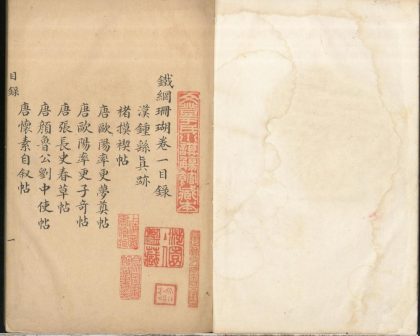 鐵網珊瑚卷一目錄
漢鍾繇真跡
褚模禊帖
唐歐陽率更夢奠帖
唐歐陽率更子奇帖
唐張長史春草帖
唐顏魯公劉中使帖
唐懷素自敘帖
目錄
一